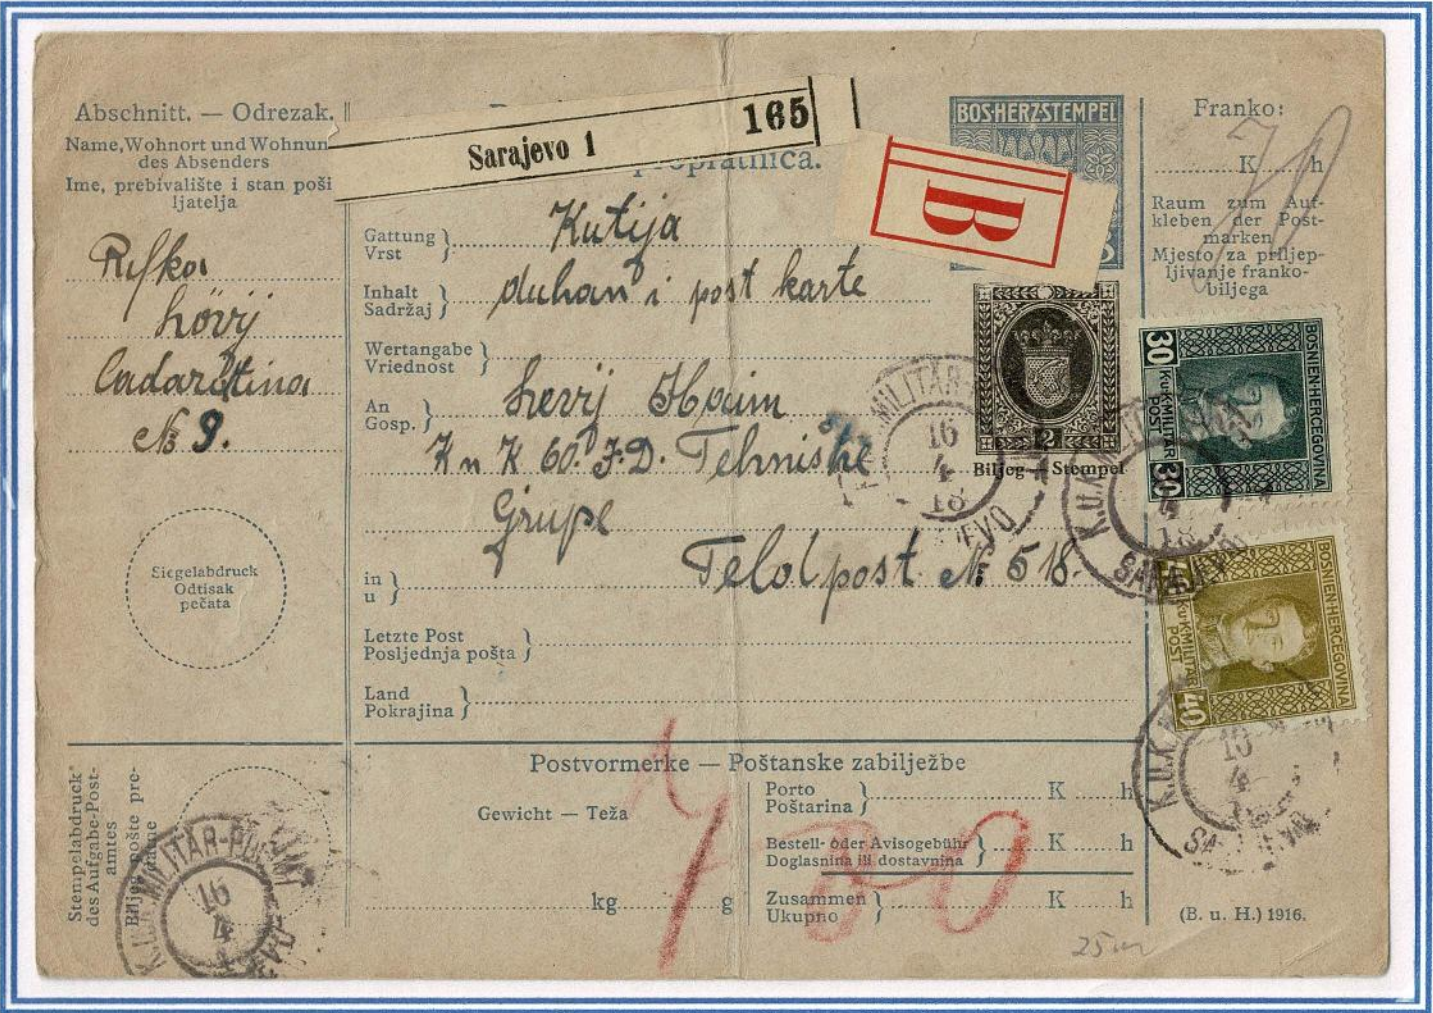 Abschnitt. — Odrezak.
Name, Wohnort und Wohnun
des Absenders
Ime, prebivalište i stan poši
ljatelja
Rifka
Lövij
No 9.
Siegelabdruck
Odtisak
pečata
Stempelabdruck
des Aufgabe-Post-
amtes
Biljeg pošte pre-
Sarajevo 1
165
B
BOS·HERZ·STEMPEL
Gattung
Vrst
Kutija
Inhalt
Sadržaj
duhan i post karte
Wertangabe
Vriednost
An
Gosp.
Levij Haim
K u K 60. J. D. Tehniške
Grupe
in
u
Feldpost No 518.
Letzte Post
Posljednja pošta
Land
Pokrajina
2
Biljeg — Stempel
Franko:
K h
70
Raum zum Auf-
kleben der Post-
marken
Mjesto za priljep-
ljivanje franko-
biljega
30
BOSNIEN-HERCEGOVINA
K.u.K.MILITÄR
POST
30
BOSNIEN-HERCEGOVINA
K.u.K.MILITÄR
POST
40
K.u.K. MILITÄR-
16
4
18
SARAJEVO
Postvormerke — Poštanske zabilježbe
Gewicht — Teža
kg g
Porto
Poštarina
K h
Bestell- oder Avisogebühr
Doglasnina ili dostavnina
K h
Zusammen
Ukupno
K h
(B. u. H.) 1916.